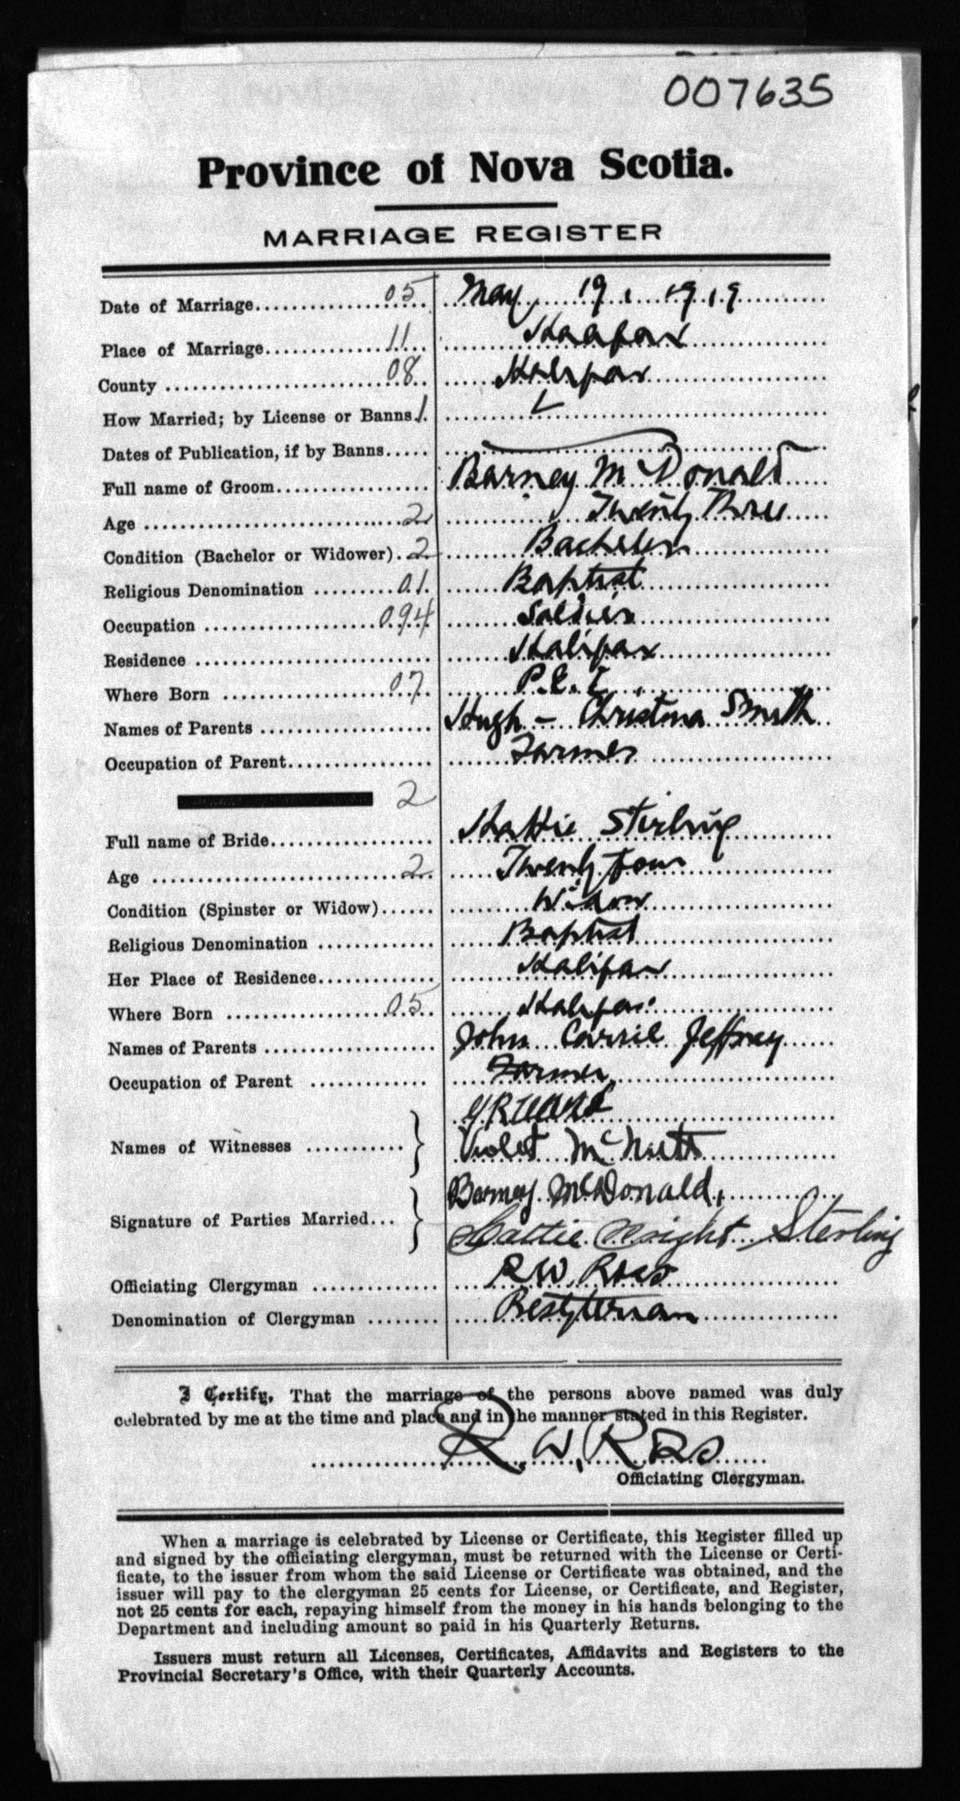 007635
Province of Nova Scotia.
MARRIAGE REGISTER
Date of Marriage 05 May 19, 1919
Place of Marriage 11 Halifax
County 08 Halifax
How Married; by License or Banns 1 L
Dates of Publication, if by Banns
Full name of Groom Barney McDonald
Age 2 Twenty Three
Condition (Bachelor or Widower) 2 Bachelor
Religious Denomination 01 Baptist
Occupation 094 Soldier
Residence Halifax
Where Born 07 P.E.I.
Names of Parents Hugh - Christina Smith
Occupation of Parent Farmer
2
Full name of Bride Hattie Sterling
Age 2 Twenty four
Condition (Spinster or Widow) Widow
Religious Denomination Baptist
Her Place of Residence Halifax
Where Born 05 Halifax
Names of Parents John Carrie Jeffrey
Occupation of Parent Farmer
Names of Witnesses
Violet McNutt
Signature of Parties Married Barney McDonald,
Hattie Sterling
Officiating Clergyman R W Ross
Denomination of Clergyman Presbyterian
I Certify, That the marriage of the persons above named was duly
celebrated by me at the time and place and in the manner stated in this Register.
R. W. Ross
Officiating Clergyman.
When a marriage is celebrated by License or Certificate, this Register filled up
and signed by the officiating clergyman, must be returned with the License or Certi-
ficate, to the issuer from whom the said License or Certificate was obtained, and the
issuer will pay to the clergyman 25 cents for License, or Certificate, and Register,
not 25 cents for each, repaying himself from the money in his hands belonging to the
Department and including amount so paid in his Quarterly Returns.
Issuers must return all Licenses, Certificates, Affidavits and Registers to the
Provincial Secretary's Office, with their Quarterly Accounts.